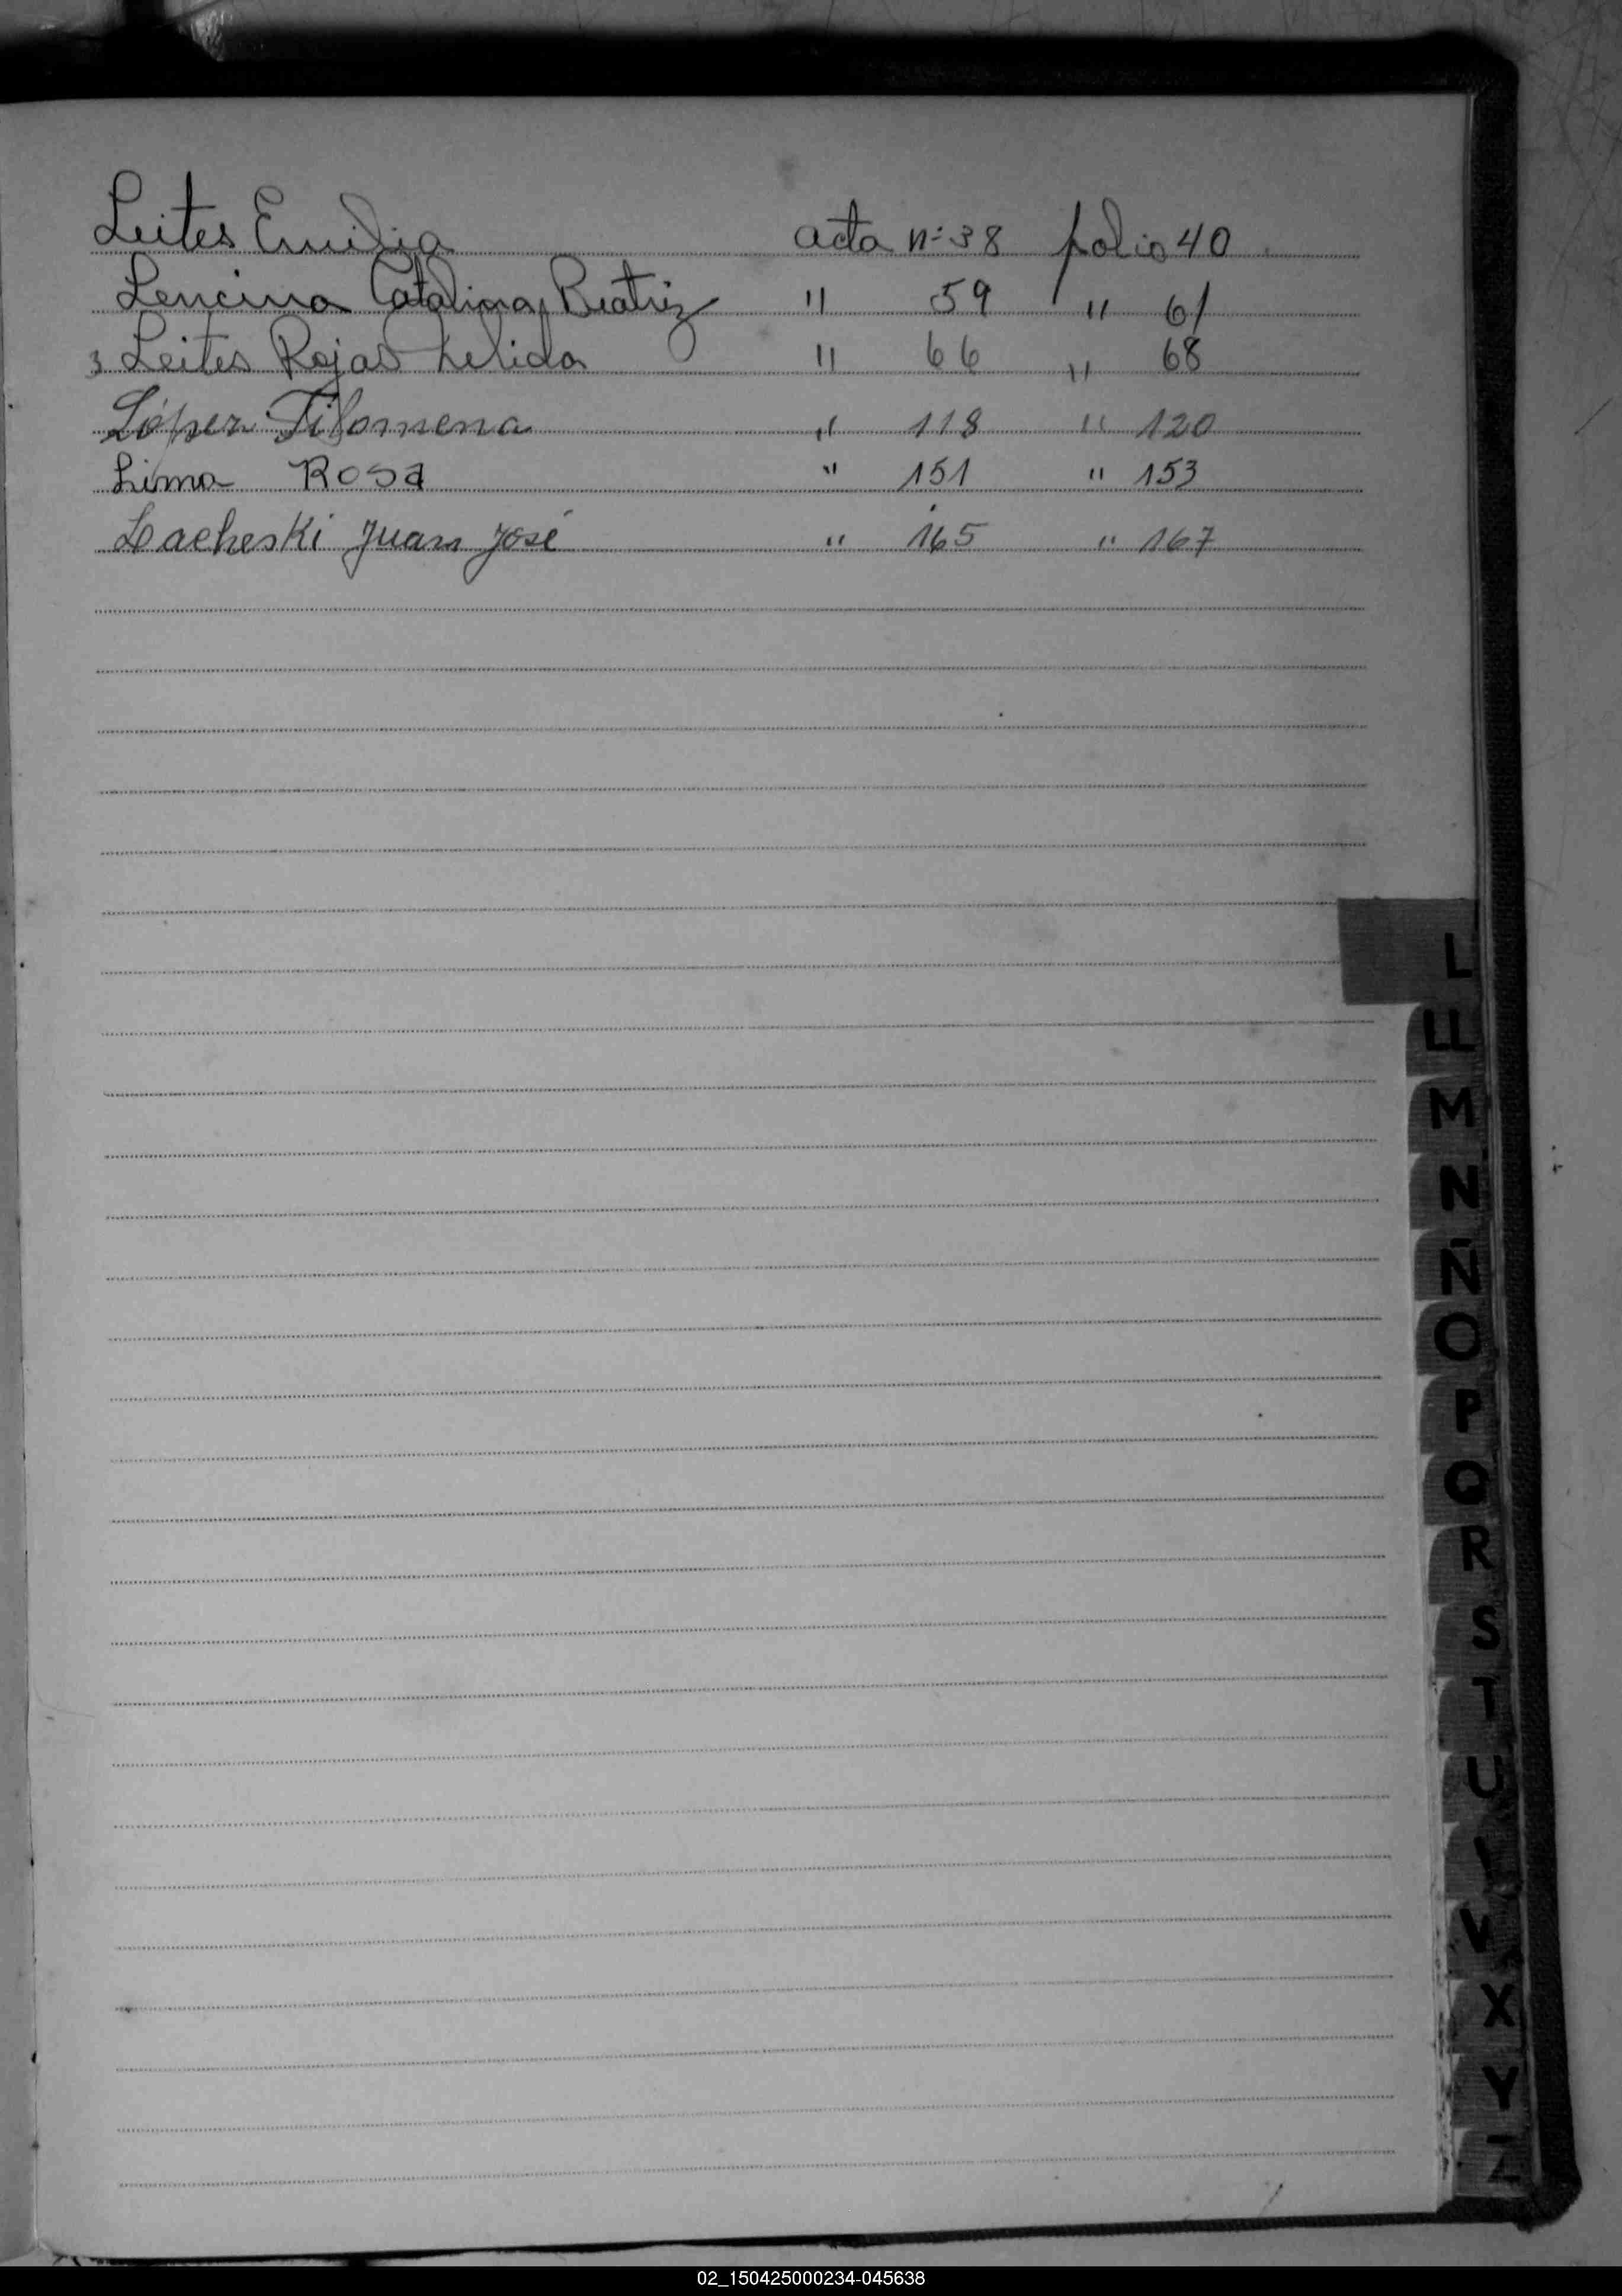 Leites Emilia acta nº 38 folio 40
Lencina Catalina Beatriz " 59 " 61
3 Leites Rojas Lelida " 66 " 68
López Filomena " 118 " 120
Lima Rosa " 151 " 153
Lacheski Juan José " 165 " 167
L
LL
M
N
Ñ
O
P
Q
R
S
T
U
V
X
Y
Z
02_150425000234-045638